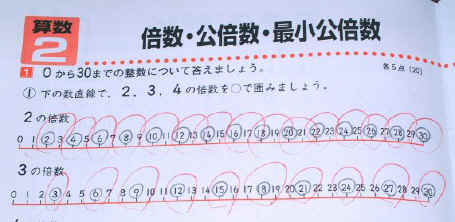 算数
2
倍数・公倍数・最小公倍数
1 0から30までの整数について答えましょう。
各5点(20)
① 下の数直線で、2、3、4の倍数を○で囲みましょう。
2の倍数
0 1 2 3 4 5 6 7 8 9 10 11 12 13 14 15 16 17 18 19 20 21 22 23 24 25 26 27 28 29 30
3の倍数
0 1 2 3 4 5 6 7 8 9 10 11 12 13 14 15 16 17 18 19 20 21 22 23 24 25 26 27 28 29 30